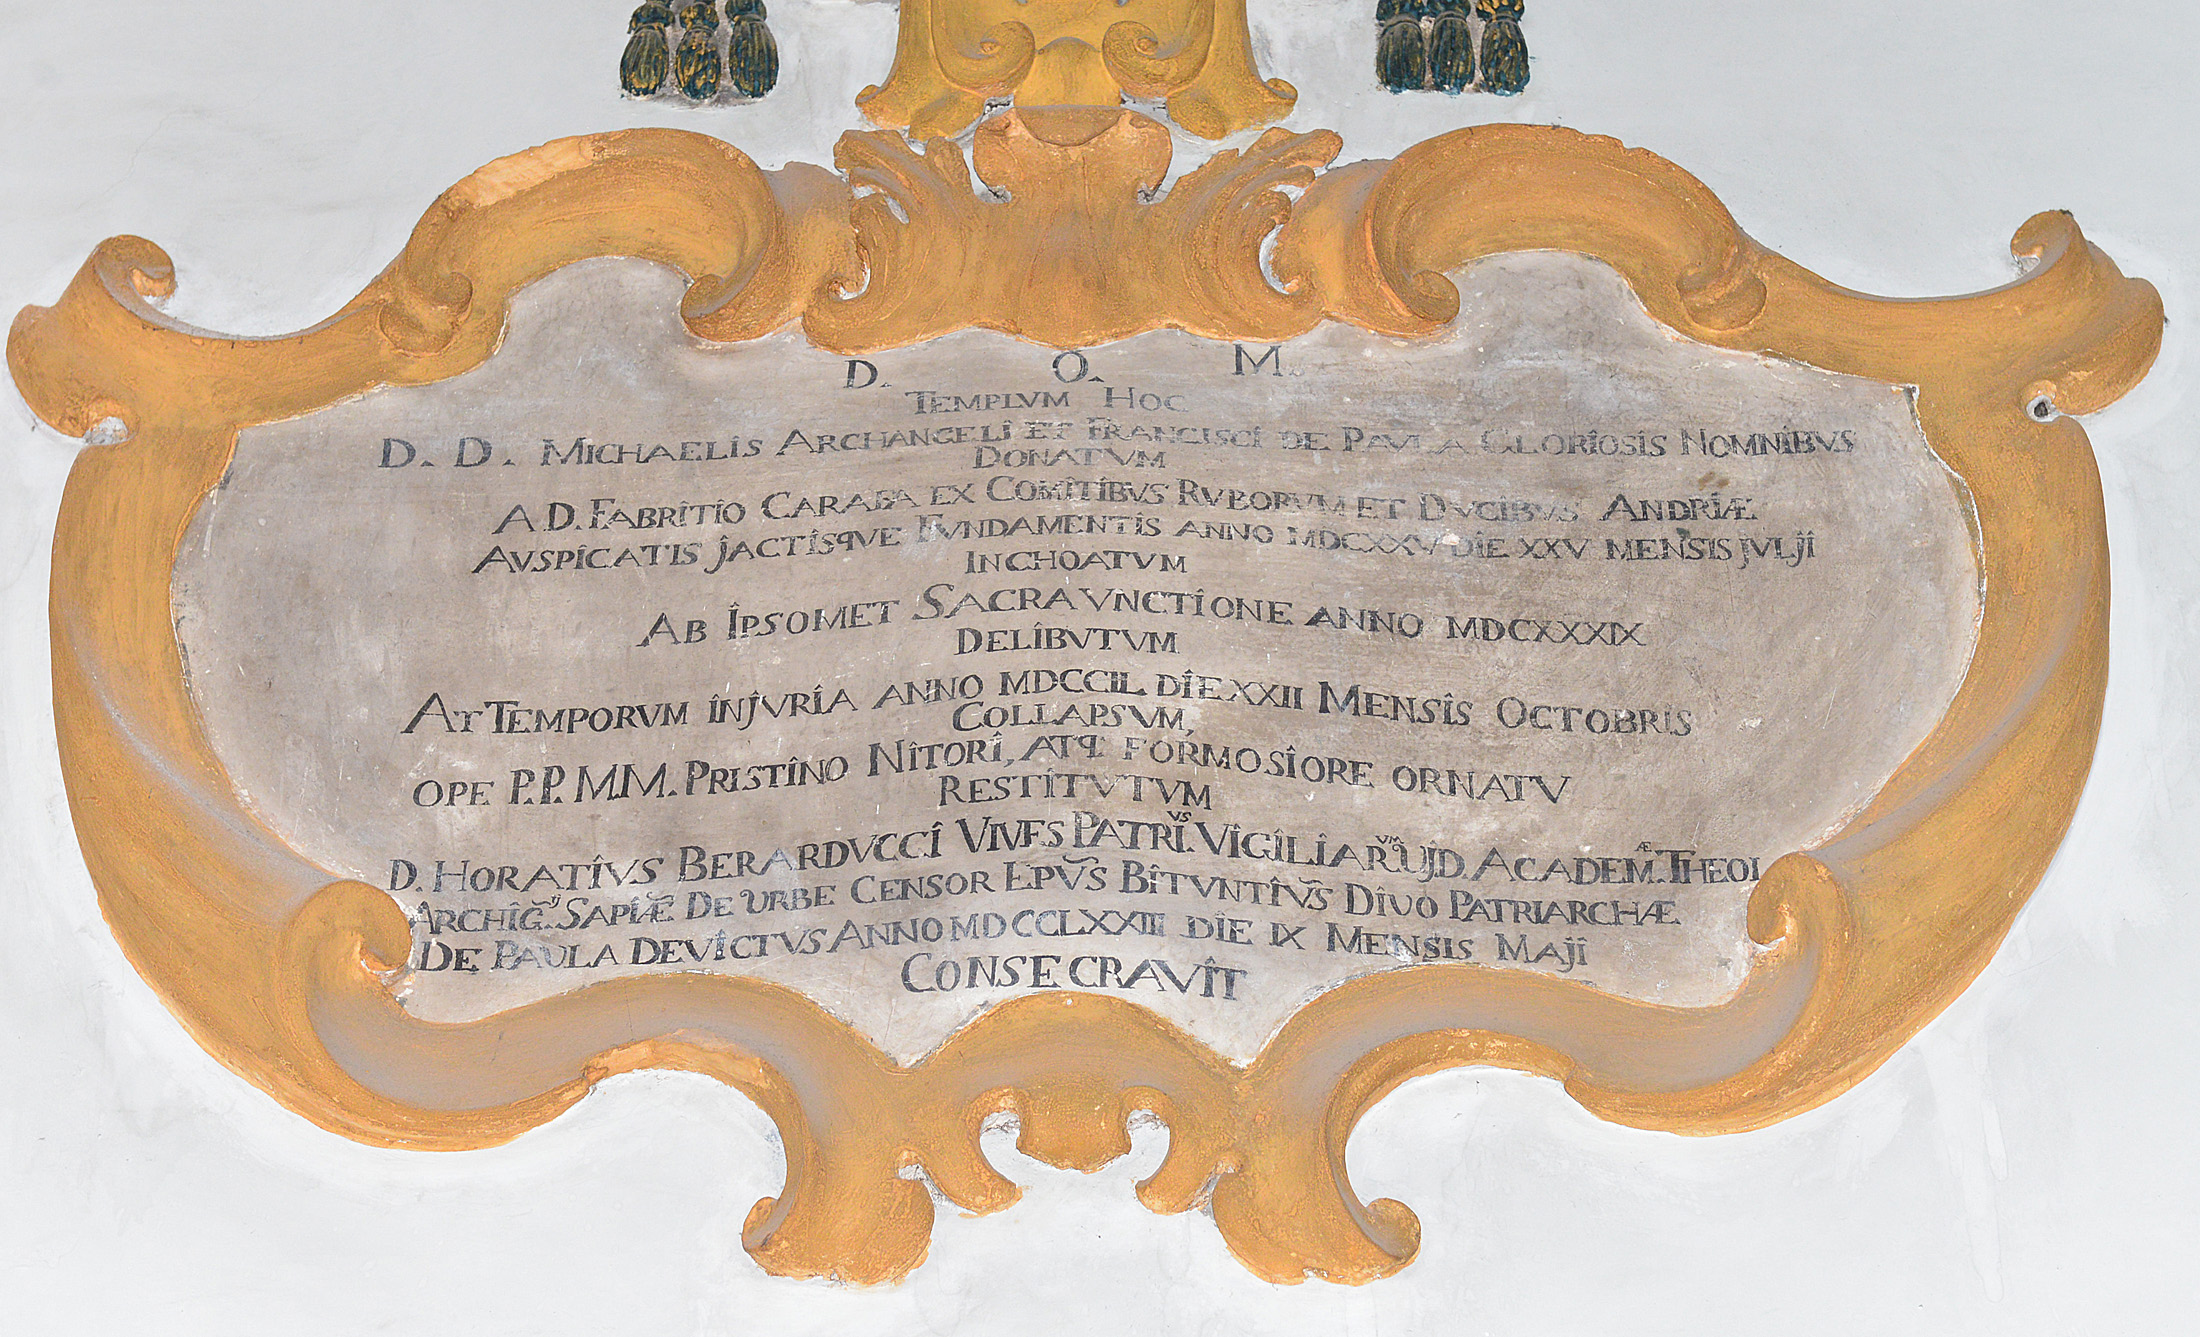 D. O. M.
TEMPLVM HOC
D. D. MICHAELIS ARCHANGELI ET FRANCISCI DE PAVLA GLORIOSIS NOMNIBVS
DONATVM
A D. FABRITIO CARAFA EX COMITIBVS RVBORVM ET DVCIBVS ANDRIÆ
AVSPICATIS JACTISQVE FVNDAMENTIS ANNO MDCXXV DIE XXV MENSIS JVLJI
INCHOATVM
AB IPSOMET SACRA VNCTIONE ANNO MDCXXXIX
DELIBVTVM
AT TEMPORVM INJVRIA ANNO MDCCIL DIE XXII MENSIS OCTOBRIS
COLLAPSVM,
OPE P.P. M.M. PRISTINO NITORI, ATQ FORMOSIORE ORNATV
RESTITVTVM
D. HORATIVS BERARDVCCI VIVES PATRI.VS VIGILIAR.VM UJD ACADEM.Æ THEOL
ARCHIG. SAPIÆ DE URBE CENSOR EPVS BITVNTIVS DIVO PATRIARCHÆ
DE PAULA DEVICTVS ANNO MDCCLXXIII DIE IX MENSIS MAJI
CONSECRAVIT